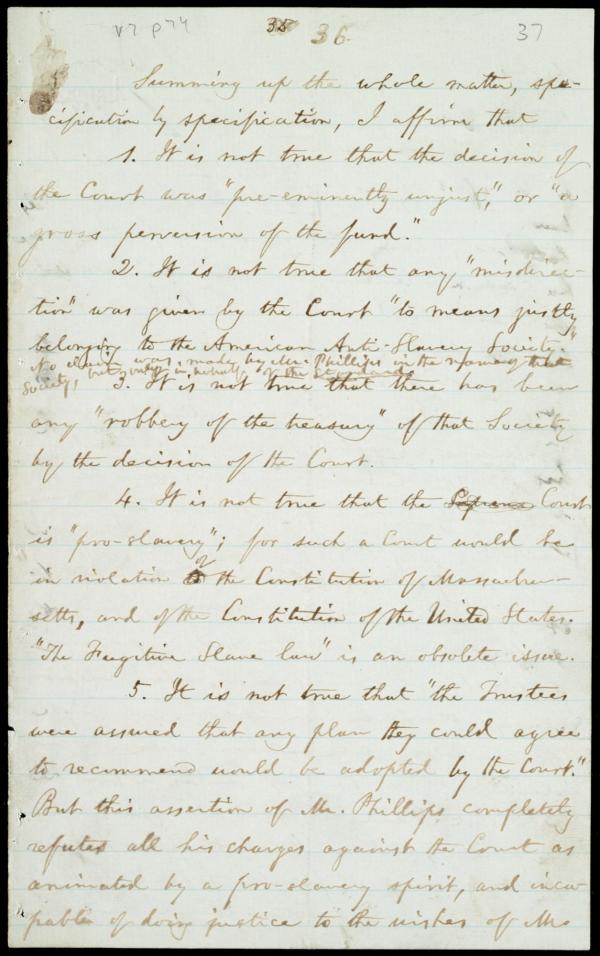 v7 p74 38 36 37
Summing up the whole matter, spe-
cification by specification, I affirm that
1. It is not true that the decision of
the Court was "pre-eminently unjust," or "a
gross perversion of the fund."
2. It is not true that any "misdirec-
tion" was given by the Court "to means justly
belonging to the American Anti-Slavery Society."
No claim was made by Mr. Phillips in the name of that
Society, but only in behalf of the Standard.
3. It is not true that there has been
any "robbery of the treasury" of that Society
by the decision of the Court.
4. It is not true that the Supreme Court
is "pro-slavery"; for such a Court would be
in violation of the Constitution of Massachu-
setts, and of the Constitution of the United States.
"The Fugitive Slave law" is an obsolete issue.
5. It is not true that "the Trustees
were assured that any plan they could agree
to recommend would be adopted by the Court."
But this assertion of Mr. Phillips completely
refutes all his charges against the Court as
animated by a pro-slavery spirit, and inca-
pable of doing justice to the wishes of Mr.